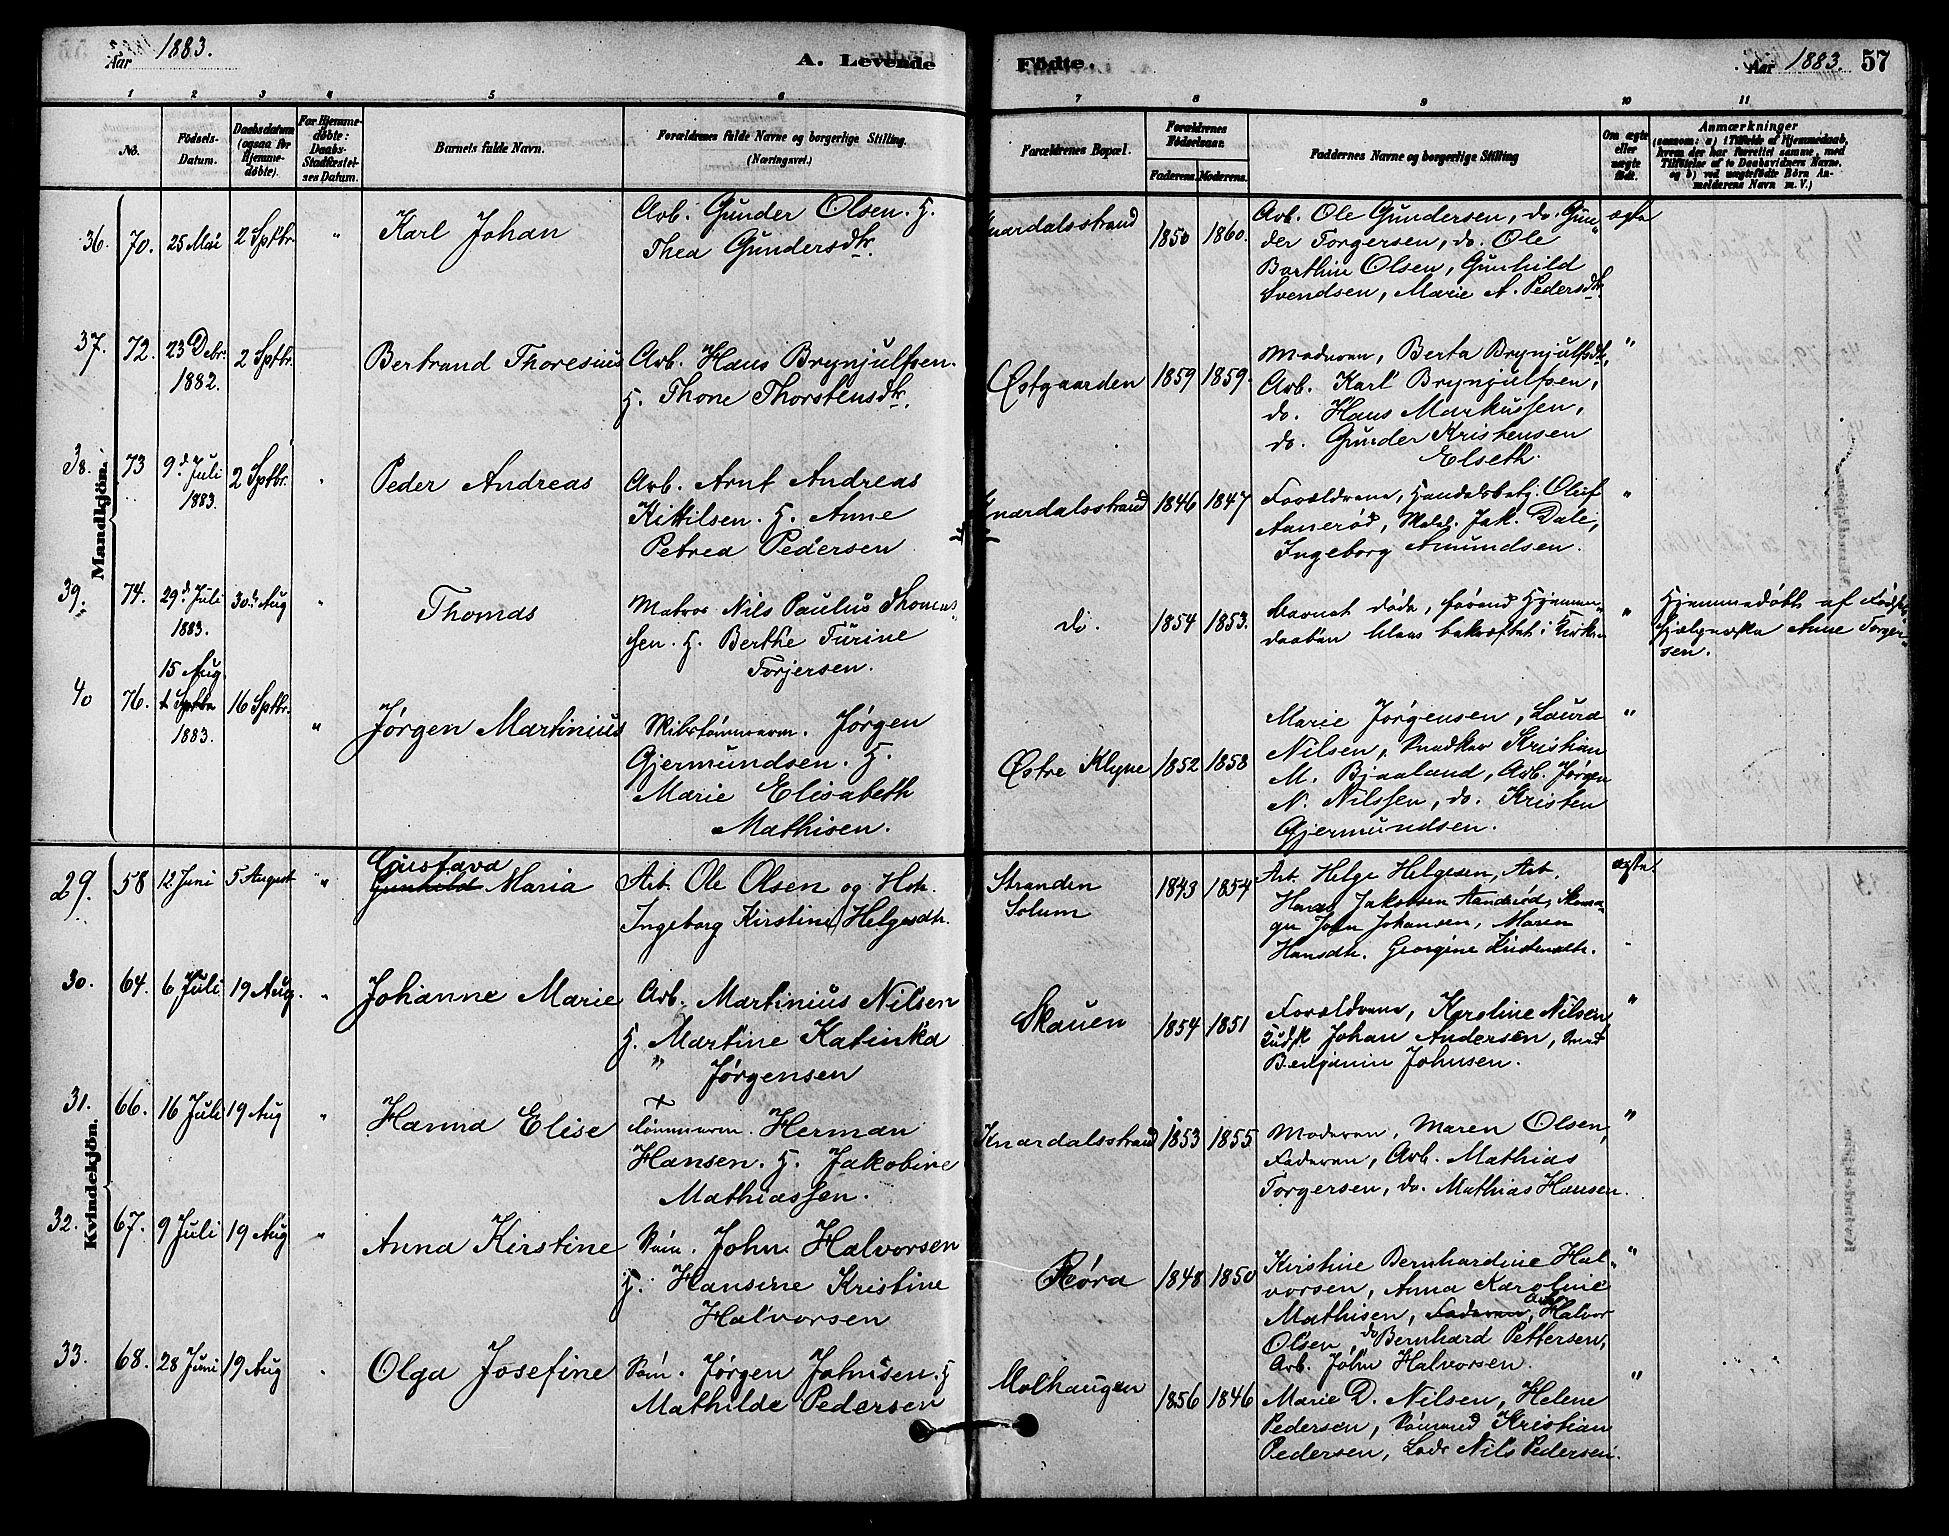 Aar 1883.
A. Levende
Födte.
Aar 1883. 57
1 2 3 4 5 6 7 8 9 10 11
No.
Födsels-
Datum.
Daabsdatum
(ogsaa for
Hjemme-
døbte).
For Hjemme-
døbte:
Daabs-
Stadfæstel-
ses Datum.
Barnets fulde Navn.
Forældrenes fulde Navne og borgerlige Stilling.
(Næringsvei.)
Forældrenes Bopæl.
Forældrenes
Födselsaar.
Faderens. Moderens.
Faddernes Navne og borgerlige Stilling
Om ægte
eller
uægte
födt.
Anmærkninger
(saasom: a) i Tilfælde af Hjemmedaab,
hvem der har forrettet samme, med
Tilföielse af to Daabsvidners Navne,
og b) ved uægtefödte Börn An-
melderens Navn m. V.)
Mandkjön.
36. 70. 25 Mai 2 Sptbr. " Karl Johan
Arb. Gunder Olsen. H.
Thea Gundersdtr.
Knardalsstrand 1850 1860.
Arb. Ole Gundersen, do. Gun-
der Torgersen, do. Ole
Barthin Olsen, Gunhild
Svendsen, Marie A. Pedersdtr.
ægte
37. 72. 23 Debr. 1882. 2 Sptbr. Bertrand Thoresius
Arb. Hans Brynjulfsen.
H. Thone Thorstensdtr.
Østgaarden 1859 1859.
Moderen, Berta Brynjulfsdtr,
Arb. Karl Brynjulfsen,
do. Hans Markussen,
do. Gunder Kristensen
Elseth.
"
38. 73 9d Juli 1883. 2 Sptbr. " Peder Andreas
Arb. Arnt Andreas
Kittilsen. H. Anne
Petrea Pedersen
Knardalsstrand 1846 1847
Forældrene, Handelsbetj. Oluf
Aanerød, Jak. Dale,
Ingeborg Amundsen.
"
39. 74. 29d Juli 1883. 30d Aug " Thomas
Matros Nils Paulus Thomas-
sen. H. Berthe Turine
Torjersen.
do. 1854 1853.
Barnet døde, førend Hjemme-
daaben blev bekræftet i Kirken
"
Hjemmedøbt af Fødsels-
hjælperske Anne Torger-
sen.
40 76. 15 Aug. 1883. 16 Sptbr. " Jørgen Martinius
Skibstømmerm. Jørgen
Gjermundsen. H.
Marie Elisabeth
Mathisen.
Østre Klyve 1852 1858
Marie Jørgensen, Laura
Nilsen, Snedker Kristian
M. Bjaaland, Arb. Jørgen
N. Nilssen, do. Kristen
Gjermundsen.
"
Kvindekjön.
29. 58 12 Juni 5 August " Gustava
Gunhild Maria
Arb. Ole Olsen og Hstr.
Ingeborg Kirstine Helgesdtr.
Stranden
Solum
1843 1854
Arb. Helge Helgesen, Arb.
Hans Jakobsen Aanerød, Skoma-
ger John Johansen, Maren
Hansdtr. Georgine
ægte.
30. 64. 6 Juli 19 Aug. " Johanne Marie
Arb. Martinius Nilsen
H. Martine Katinka
" Jørgensen
Skauen 1854 1851
Forældrene, Karoline Nilsen,
Johan Andersen,
Benjamin Johnsen.
"
31. 66. 16 Juli 19 Aug " Hanna Elise
Tømmerm. Herman
Hansen. H. Jakobine
Mathiassen.
Knardalsstrand 1853 1855
Moderen, Maren Olsen,
Faderen, Arb. Mathias
Torgersen, do. Mathias Hansen.
"
32. 67. 9 Juli 19 Aug " Anna Kirstine
Søm. John Halvorsen
H. Hansine Kristine
Halvorsen
Røra 1848 1850
Kirstine Bernhardine Hal-
vorsen, Anna Karoline
Mathisen, Faderen, Arb. Halvor
Olsen, do Bernhard Pettersen,
Arb. John Halvorsen.
"
33. 68. 28 Juni 19 Aug " Olga Josefine
Søm. Jørgen Johnsen. H
Mathilde Pedersen
Molhaugen 1856 1846
Marie D. Nilsen, Helene
Pedersen, Sømand Kristian
Pedersen, Lods Nils Pedersen.
"